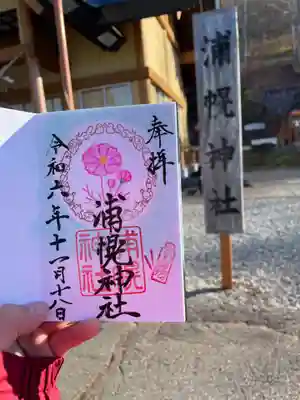 奉拝
浦幌神社
令和六年十一月十八日
浦幌神社
浦幌神社